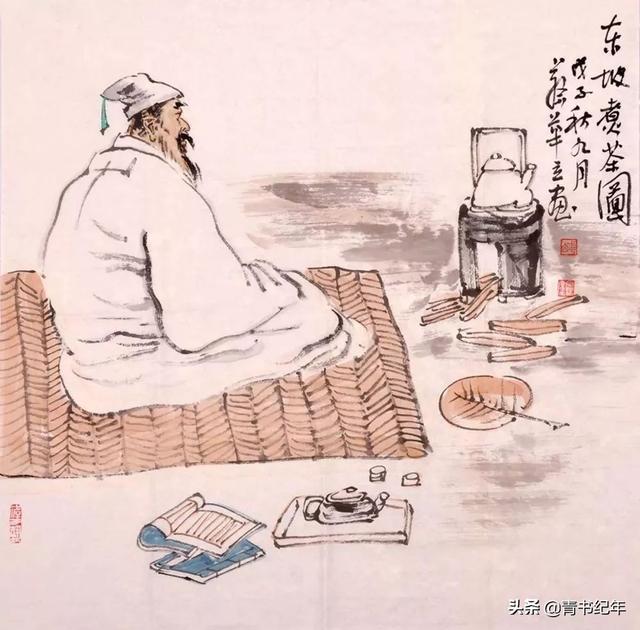 东坡煮茶圖
戊子秋九月
華立画
头条 @青书纪年